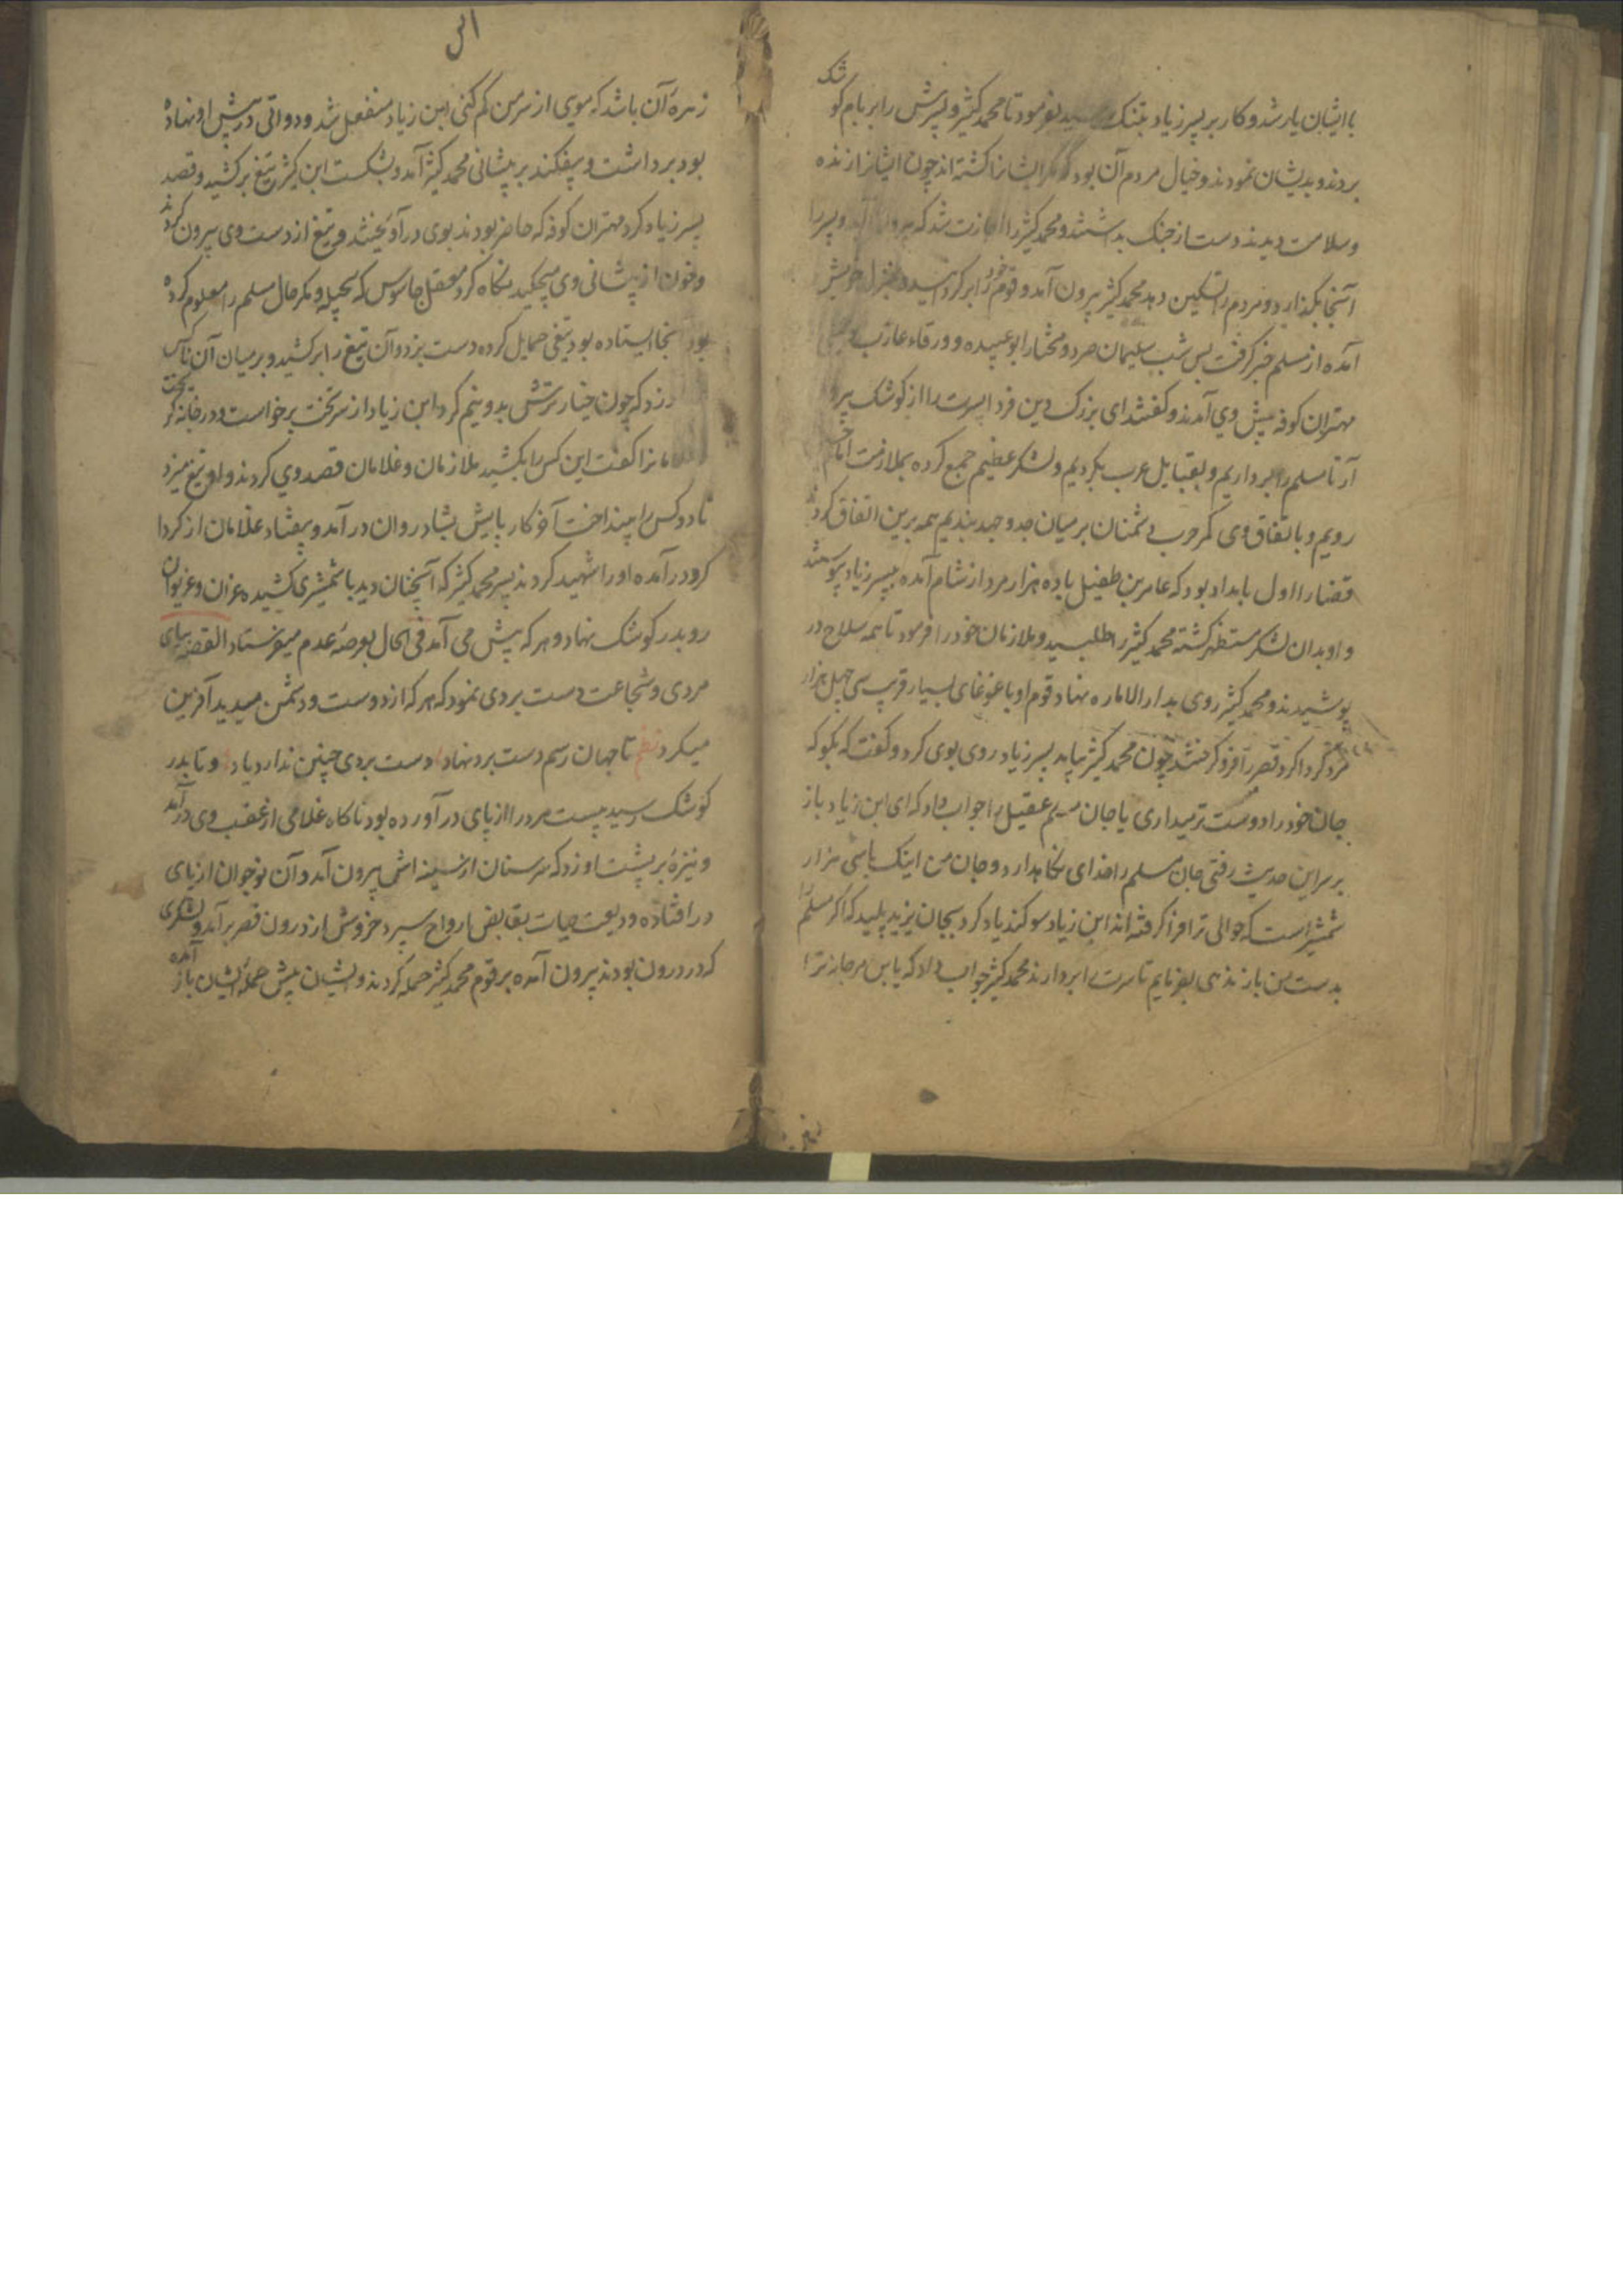 با ایشان یار شد و کار بر پسر زیاد بتنک رسید بفرمود تا محمد کثیر و پسرش را بر بام کوشک
بردند و بدیشان نمودند و خیال مردم آن بود که مکر ایشانرا کشته اند چون ایشانرا زنده
و سلامت دیدند دست از جنک بداشتند و محمد کثیر را اجازت شد که بیرون آید و پسر را
آنجا بکذارد و مردم را تسکین دهد محمد کثیر بیرون آمد و قوم خود را بر کردانید و بمنزل خویش
آمده از مسلم خبر کرفت پس شب سلیمان صرد و مختار ابو عبیده و ورقاء عازب و
مهتران کوفه پیش وی آمدند و کفتند ای بزرک دین فردا پسرت را از کوشک بیرو
آر تا مسلم را برداریم و بقبایل عرب بکردیم و لشکر عظیم جمع کرده بملازمت امام
رویم و باتفاق وی کمر حرب دشمنان بر میان جد و جهد بندیم همه برین اتفاق کردند
قضا را اول بامداد بود که عامر بن طفیل با ده هزار مرد از شام آمده بپسر زیاد پیوستند
و او بدان لشکر مستظهر کشته محمد کثیر را طلبید و ملازمان خود را فرمود تا همه سلاح در
پوشیدند و محمد کثیر روی بدار الاماره نهاد قوم او با غوغای بسیار قریب سی چهل هزار
مرد کرداکرد قصر را فرو کرفتند چون محمد کثیر بیامد پسر زیاد روی بوی کرد و کفت که بکو که
جان خود را دوست تر میداری یا جان مسلم عقیل را جواب داد که ای ابن زیاد باز
بر سر این حدیث رفتی جان مسلم را خدای نکاهدارد و جان من اینک با سی هزار
شمشیر است که حوالی ترا فرا کرفته اند ابن زیاد سوکند یاد کرد بجان یزید پلید که اکر مسلم را
بدست من باز ندهی بفرمایم تا سرت را بردارند محمد کثیر جواب داد که یا بن مرجانه ترا
زهرهٔ آن باشد که مویی از سر من کم کنی ابن زیاد منفعل شد و دواتی در پیش او نهاده
بود برداشت و بیفکند بر پیشانی محمد کثیر آمد و بشکست ابن کثیر تیغ برکشید و قصد
پسر زیاد کرد مهتران کوفه که حاضر بودند بوی درآویختند و تیغ از دست وی بیرون کردند
و خون از پیشانی وی میچکید نکاه کرد معقل جاسوس که بحیله و مکر حال مسلم را معلوم کرده
بود آنجا ایستاده بود تیغی حمایل کرده دست بزد و آن تیغ را برکشید و بر میان آن ناکس
زد که چون خیار ترش بدو نیم کرد ابن زیاد از سر تخت برخواست و در خانه کریخت
کفت این کس را بکشید ملازمان و غلامان قصد وی کردند و او تیغ میزد
تا دو کس را بینداخت آخر کار پایش بشادروان در آمد و بیفتاد غلامان از کردا
کرد درآمده او را شهید کردند پسر محمد کثیر که آنچنان دید با شمشیری کشیده غران و غریوان
رو بدر کوشک نهاد و هر که پیش می آمد فی الحال بعرصهٔ عدم میفرستاد القصه بپای
مردی و شجاعت دست بردی نمود که هر که از دوست و دشمن میدید آفرین
میکرد نظم تا جهان رسم دست برد نهاد دست بردی چنین ندارد یاد و تا بدر
کوشک رسید بیست مرد را از پای در آورده بود ناکاه غلامی از عقب وی درآمد
و نیزه بر پشت او زد که سر سنان از سینه اش بیرون آمد و آن نوجوان از پای
در افتاده ودیعت حیات بقابض ارواح سپرد خروش از درون قصر برآمد و لشکری
که در درون بودند بیرون آمده بر قوم محمد کثیر حمله کردند و ایشان پیش حملهٔ ایشان باز آمده